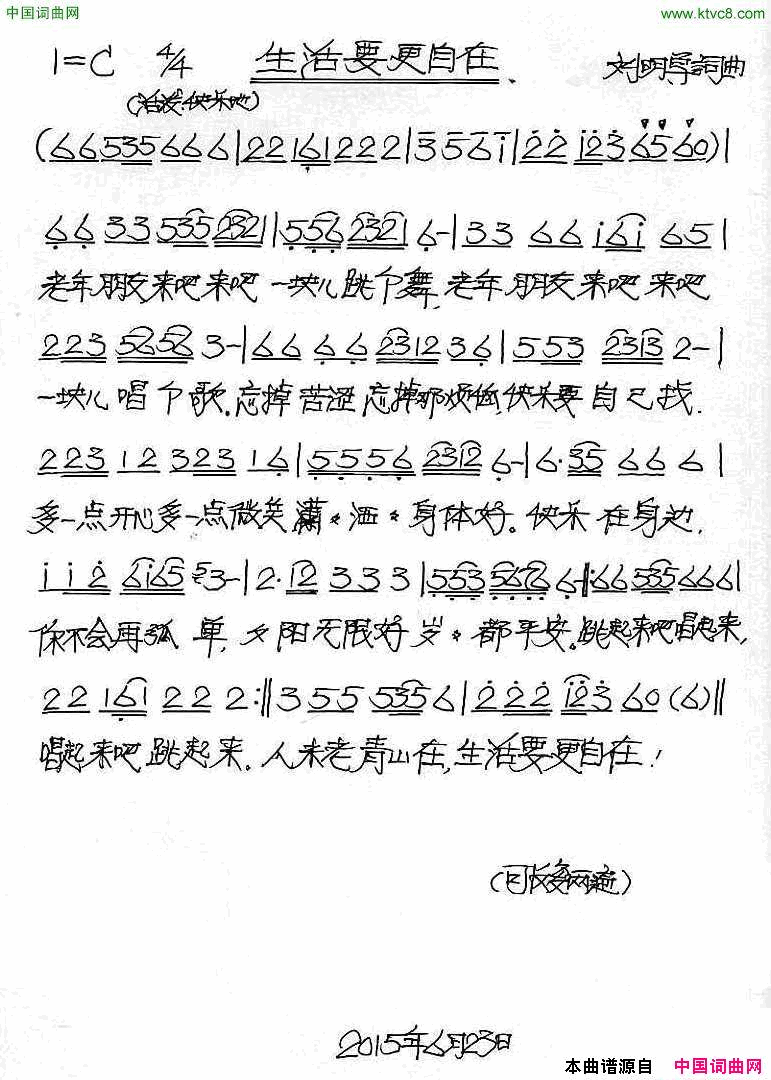 中国词曲网 www.ktvc8.com
1=C 4/4 生活要更自在 刘明 詞曲
(活泼 快乐地)
(6 6 535 6 6 6 | 2 2 161 2 2 2 | 3 5 6 i | 2 2 i23 65 60) |
6 6 3 3 535 232 | 556 232 6 - | 3 3 6 6 i6i 65 |
老年朋友来吧来吧 一块儿跳个舞,老年朋友来吧 来吧
223 5656 3 - | 6 6 6 6 2312 36 | 5 53 2313 2 - |
一块儿唱个歌.忘掉苦涩忘掉那烦恼,快乐要自己找.
223 12 323 16 | 5556 2312 6 - | 6· 35 66 6 |
多一点开心多一点微笑潇 洒 身体好。快乐在身边,
i i 2 6i65 53 - | 2· 12 3 3 3 | 553 5676 6 - ‖: 66 535 666 |
你不会再孤单,夕阳无限好岁 都平安。跳起来吧唱起来,
2 2 161 2 2 2 :‖ 3 5 5 535 6 | 2 2 2 i23 60 (6) ‖
唱起来吧跳起来.人未老青山在,生活要更自在!
(可 两遍)
2015年6月23日
本曲谱源自 中国词曲网